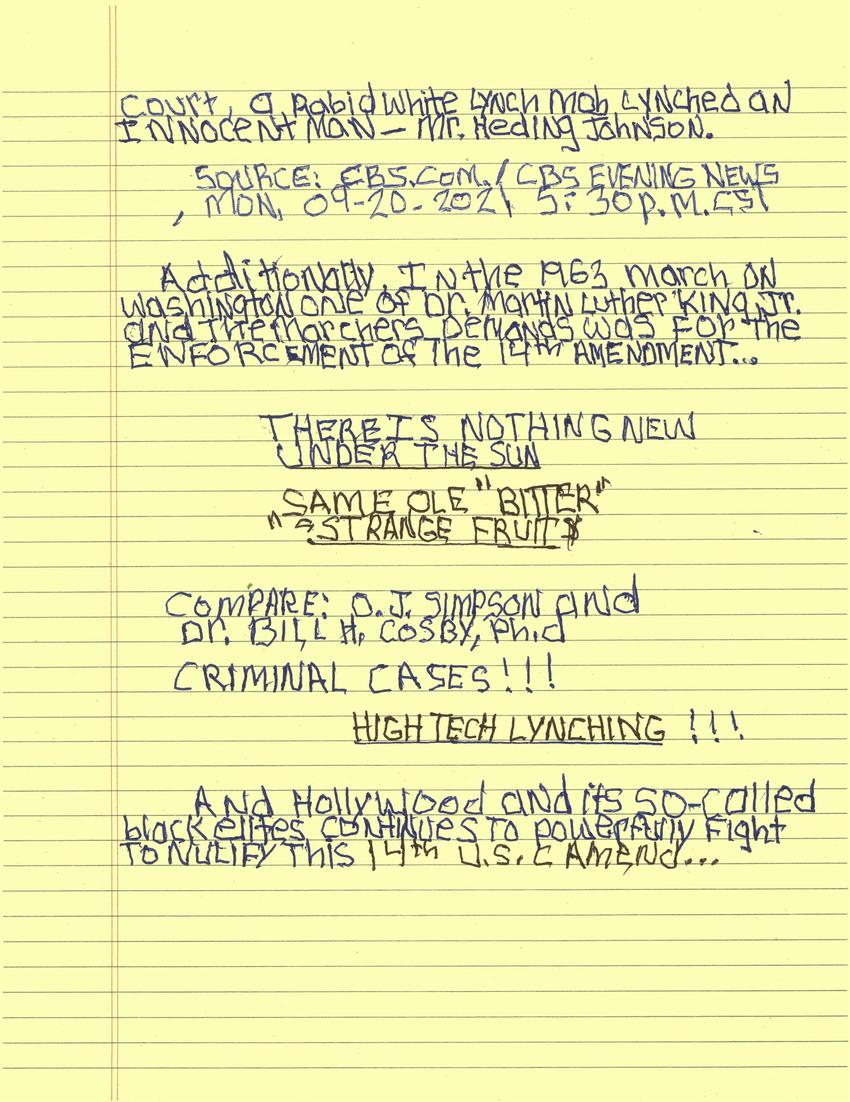 Court, a Rabid White Lynch Mob Lynched an
Innocent Man – Mr. Heding Johnson.
SOURCE: CBS.COM./CBS EVENING NEWS
, MON, 09-20-2021 5:30 p.m. CST
Additionally, In the 1963 march on
Washington one of Dr. Martin Luther King, Jr.
and The Marchers Demands was For The
ENFORCEMENT OF The 14th AMENDMENT...
THERE IS NOTHING NEW
UNDER THE SUN
SAME OLE "BITTER"
"?STRANGE FRUIT$
COMPARE: O.J. SIMPSON and
Dr. BILL H. COSBY, Ph.d
CRIMINAL CASES!!!
HIGH TECH LYNCHING !!!
And Hollywood and its SO-called
black elites continues To powerfully Fight
To NULIFY This 14th U.S.C AMEND...